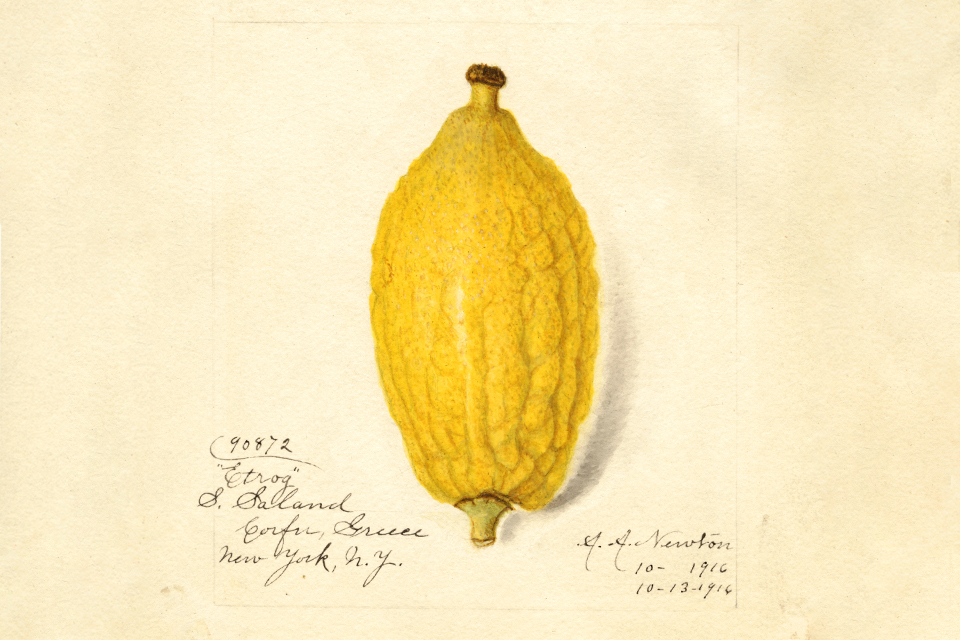 90872
"Etrog"
S. Saland
Corfu, Greece
New York, N.Y.
A. A. Newton
10- 1916
10-13-1916